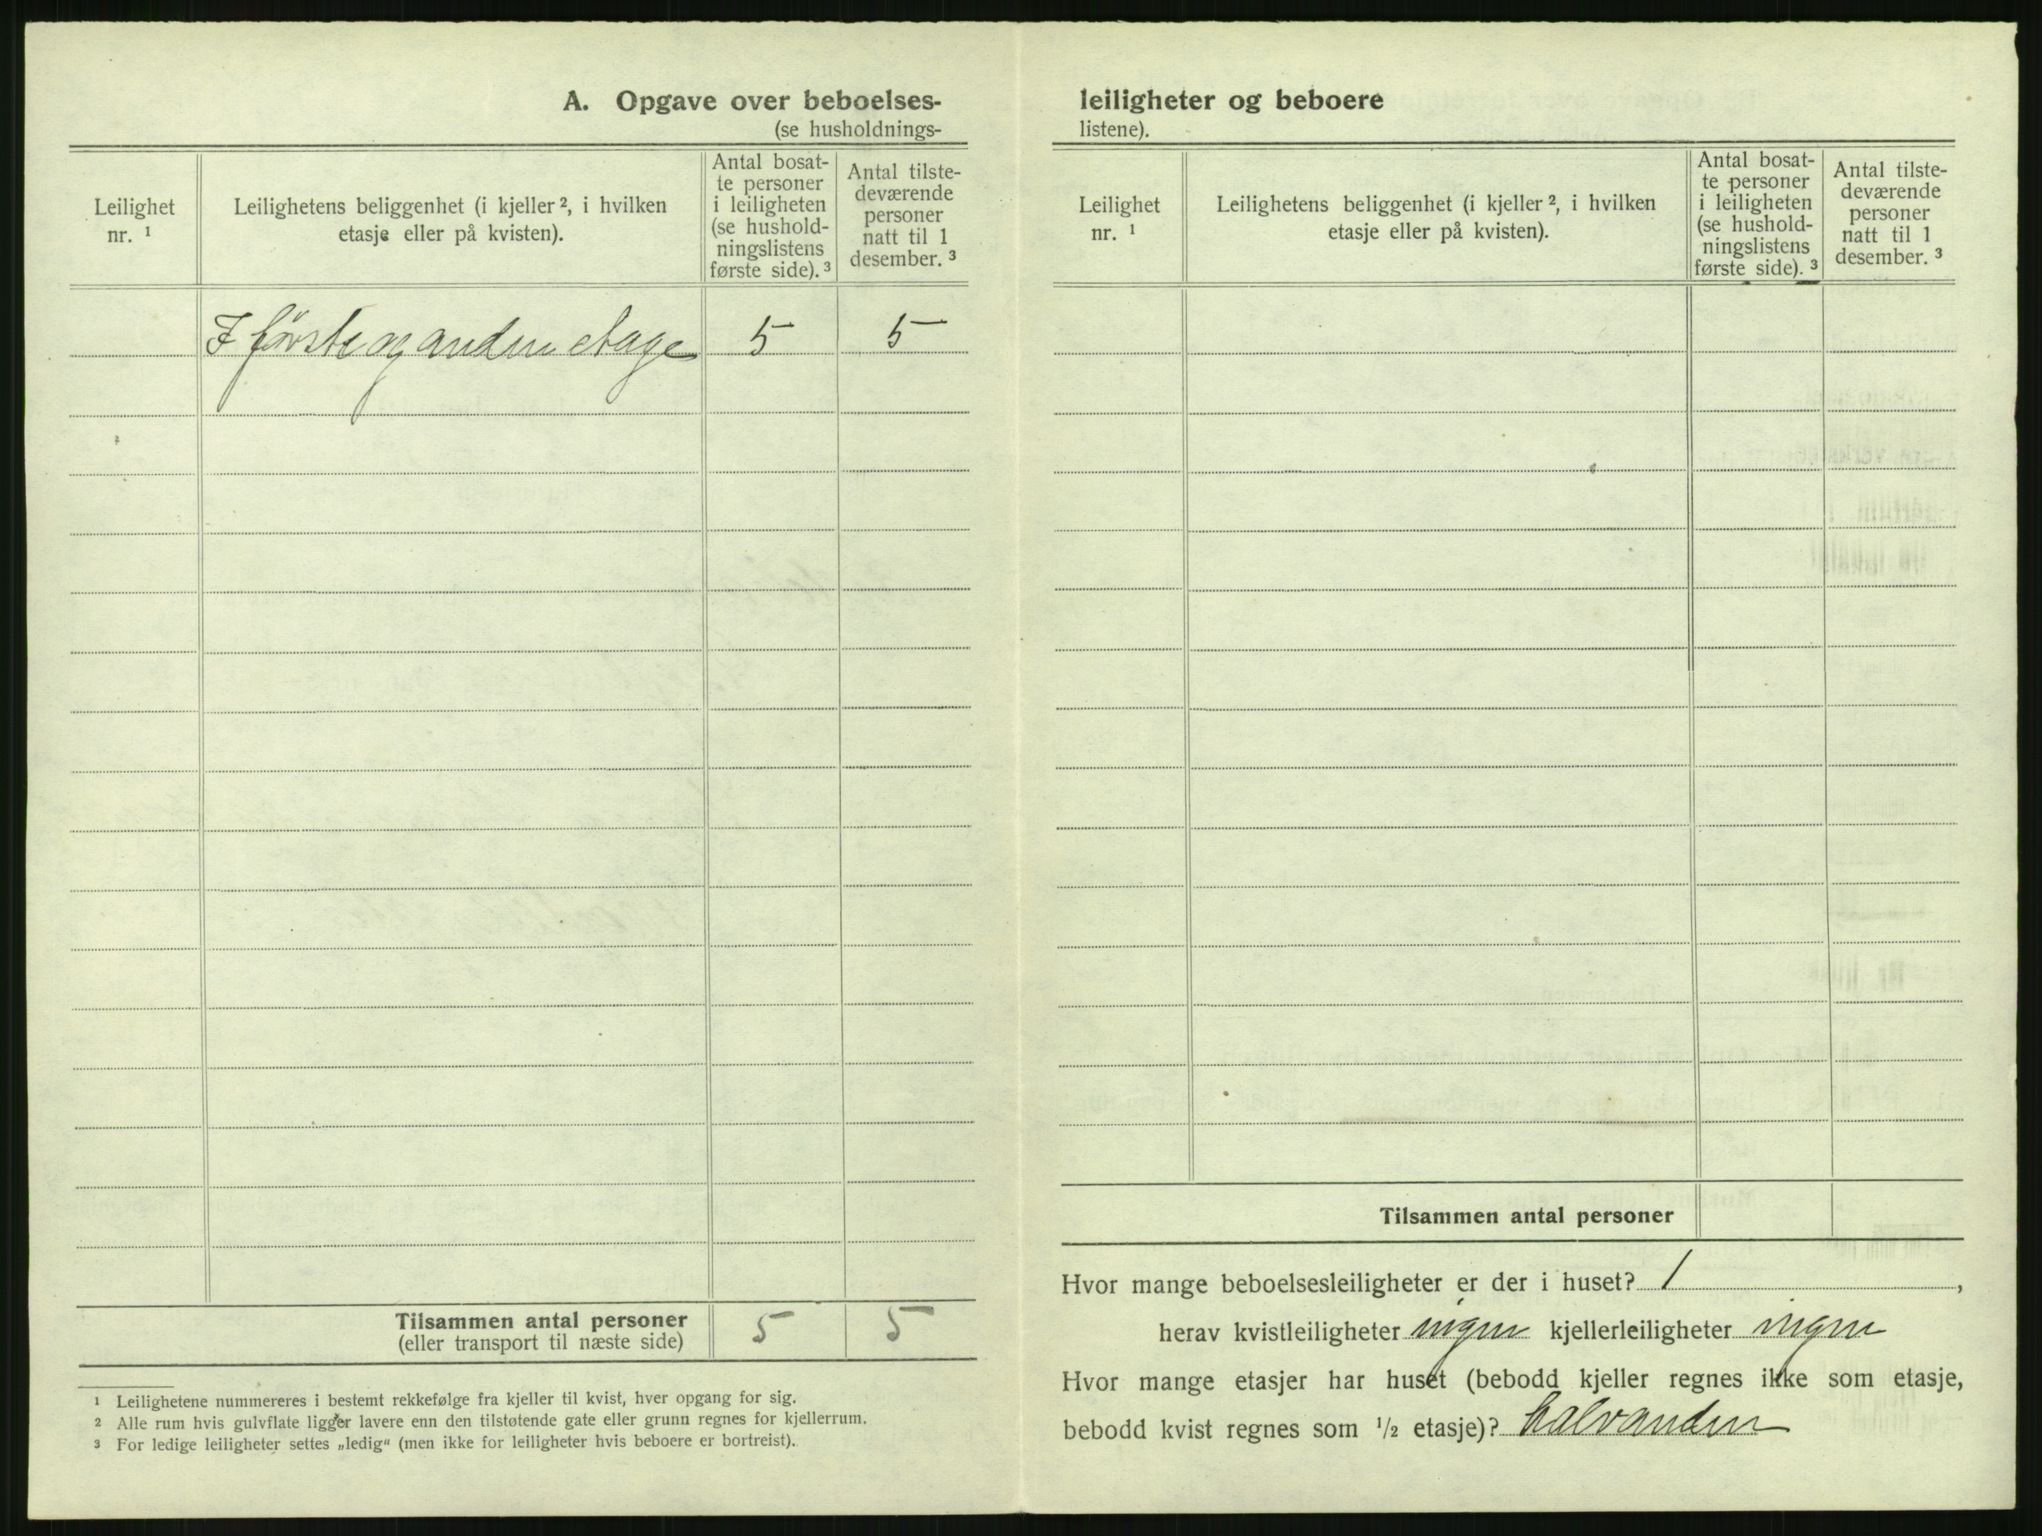 A. Opgave over beboelses-
(se husholdnings-
Leilighet
nr. 1
Leilighetens beliggenhet (i kjeller 2, i hvilken
etasje eller på kvisten).
Antal bosat-
te personer
i leiligheten
(se hushold-
ningslistens
første side). 3
Antal tilste-
deværende
personer
natt til 1
desember. 3
I første og anden etage 5 5
Tilsammen antal personer 5 5
(eller transport til næste side)
1 Leilighetene nummereres i bestemt rekkefølge fra kjeller til kvist, hver opgang for sig.
2 Alle rum hvis gulvflate ligger lavere enn den tilstøtende gate eller grunn regnes for kjellerrum.
3 For ledige leiligheter settes „ledig“ (men ikke for leiligheter hvis beboere er bortreist).
leiligheter og beboere
listene).
Leilighet
nr. 1
Leilighetens beliggenhet (i kjeller 2, i hvilken
etasje eller på kvisten).
Antal bosat-
te personer
i leiligheten
(se hushold-
ningslistens
første side). 3
Antal tilste-
deværende
personer
natt til 1
desember. 3
Tilsammen antal personer
Hvor mange beboelsesleiligheter er der i huset? 1 ,
herav kvistleiligheter ingen kjellerleiligheter ingen
Hvor mange etasjer har huset (bebodd kjeller regnes ikke som etasje,
bebodd kvist regnes som 1/2 etasje)? halvanden